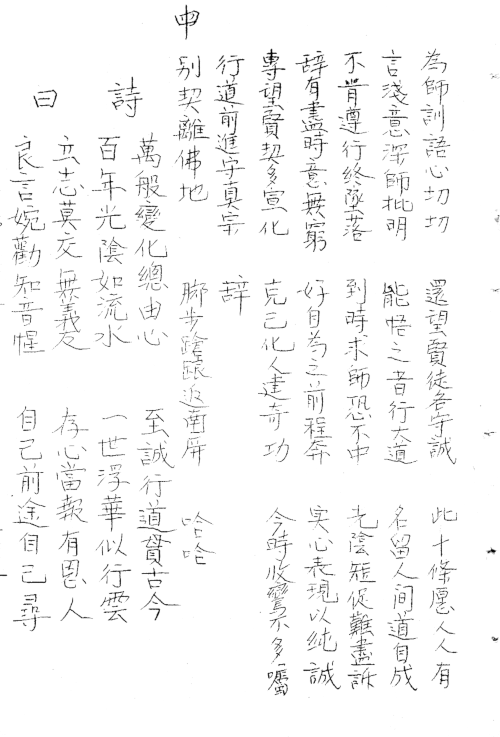 為師訓語心切切 還望賢徒各守誠 此十條愿人人有
言淺意深師批明 能悟之者行大道 名留人间道自成
不肯遵行終墜落 到時求師恐不中 光陰短促難盡訴
辞有盡時意無窮 好自為之前程奔 实心表現以純誠
專望賢契多宣化 克己化人建奇功 今時收鸞不多囑
行道前進守真宗 辞
别契離佛地 脚步蹌踉返南屏 哈哈
申
詩
曰
萬般變化總由心 至誠行道貫古今
百年光陰如流水 一世浮華似行雲
立志莫交無義人 存心當報有恩人
良言婉勸知音惺 自己前途自己尋